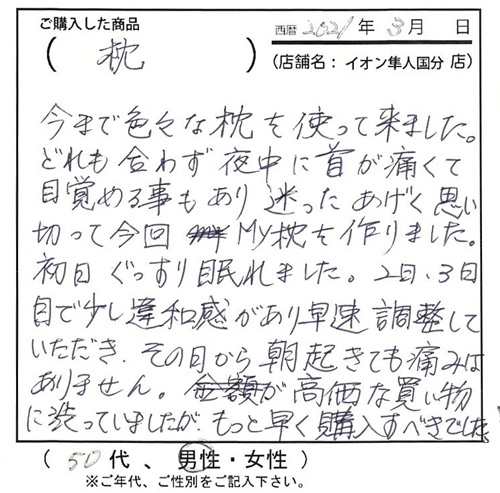 ご購入した商品
西暦 2021年 3月 日
( 枕 )
(店舗名: イオン隼人国分 店)
今まで色々な枕を使って来ました。
どれも合わず夜中に首が痛くて
目覚める事もあり迷ったあげく思い
切って今回 MY枕を作りました。
初日ぐっすり眠れました。2日、3日
目で少し違和感があり早速調整して
いただき、その日から朝起きても痛みは
ありません。金額が高価な買い物
に迷っていましたが、もっと早く購入すべきでした!
( 50代、男性・女性 )
※ご年代、ご性別をご記入下さい。